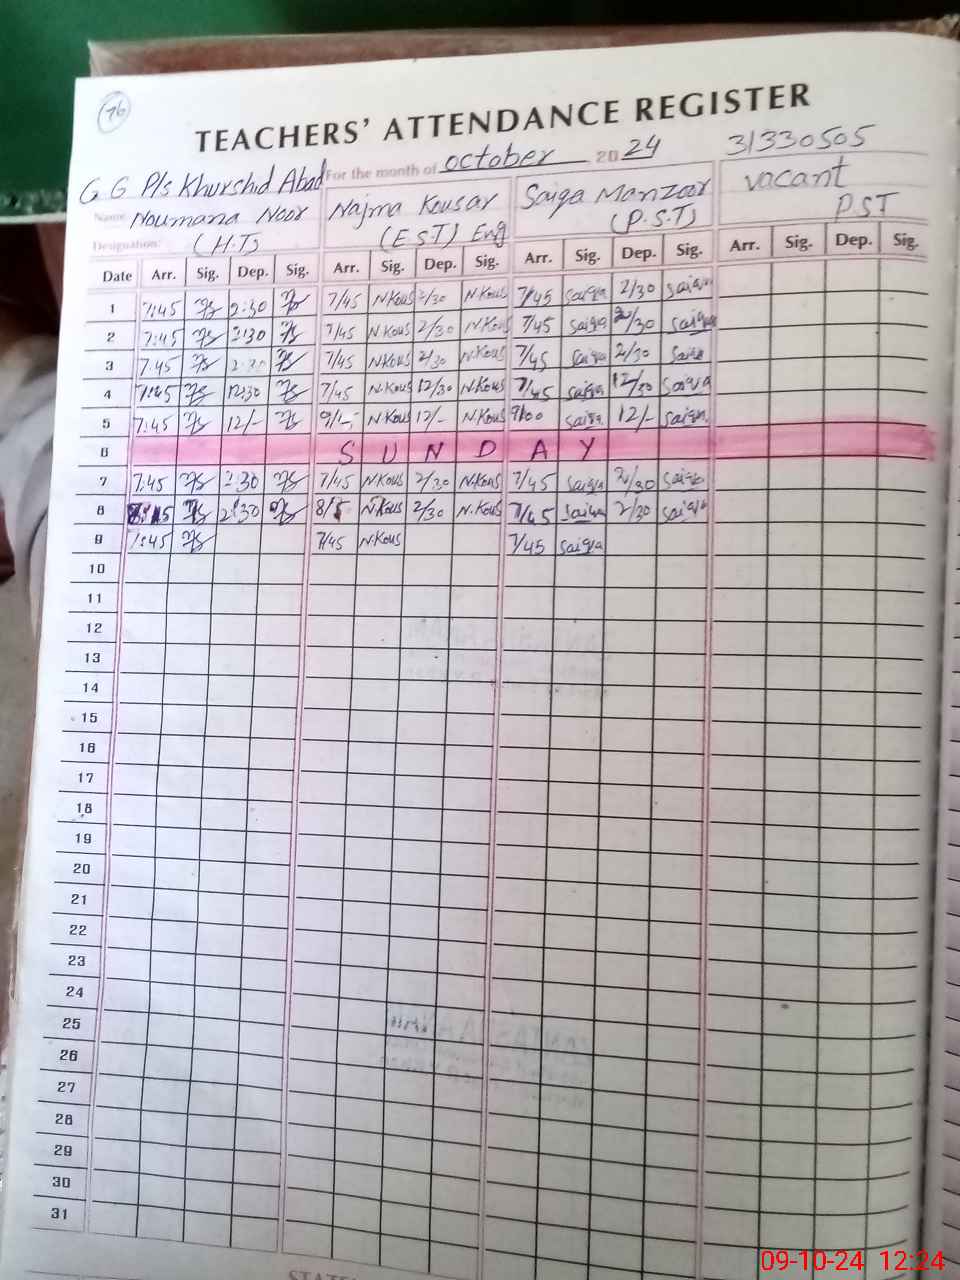 76
TEACHERS' ATTENDANCE REGISTER
For the month of october 2024 31330505
G G P/s Khurshid Abad
Name: Noumana Noor Najma Kousar Saiqa Manzoor vacant
Designation: (H.T) (EST) Eng (P.S.T) PST
Date Arr. Sig. Dep. Sig. Arr. Sig. Dep. Sig. Arr. Sig. Dep. Sig. Arr. Sig. Dep. Sig.
1 7:45 2:30 7/45 N.Kous 2/30 N.Kous 7/45 Saiqa 2/30 Saiqa
2 7:45 2:30 7/45 N.Kous 2/30 N.Kous 7/45 Saiqa 2/30 Saiqa
3 7:45 7/45 N.Kous 2/30 N.Kous 7/45 Saiqa 2/30 Saiqa
4 7:45 12:30 7/45 N.Kous 12/30 N.Kous 7/45 Saiqa 12/30 Saiqa
5 7:45 12/- N.Kous 12/- N.Kous 9/00 Saiqa 12/- Saiqa
6 SUNDAY
7 7:45 2:30 7/45 N.Kous 2/30 N.Kous 7/45 Saiqa 2/30 Saiqa
8 2:30 N.Kous 2/30 N.Kous 7/45 Saiqa 2/30 Saiqa
9 7:45 7/45 N.Kous 7/45 Saiqa
10
11
12
13
14
15
16
17
18
19
20
21
22
23
24
25
26
27
28
29
30
31
09-10-24 12:24